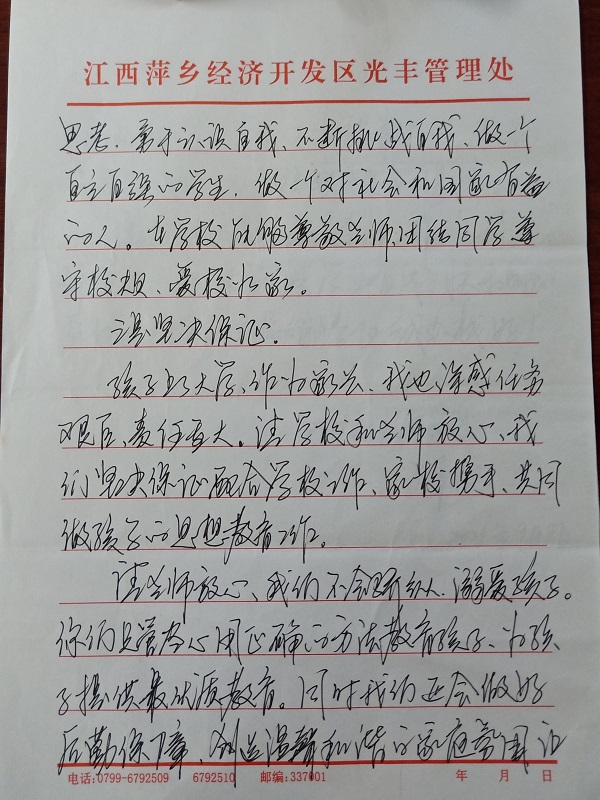 江西萍乡经济开发区光丰管理处
思考、勇于认识自我、不断挑战自我、做一个
自立自强的学生、做一个对社会和国家有益
的人。在学校能够尊敬老师团结同学遵
守校规、爱校如家。
三是坚决保证。
孩子上大学、作为家长、我也深感任务
艰巨、责任重大。请学校和老师放心、我
们坚决保证配合学校工作、家校携手、共同
做孩子的思想教育工作。
请老师放心、我们不会骄纵、溺爱孩子。
你们只管尽心用正确的方法教育孩子、为孩
子提供最优质教育。同时我们还会做好
后勤保障、创造温馨和谐的家庭氛围让
电话:0799-6792509 6792510 邮编:337001 年 月 日